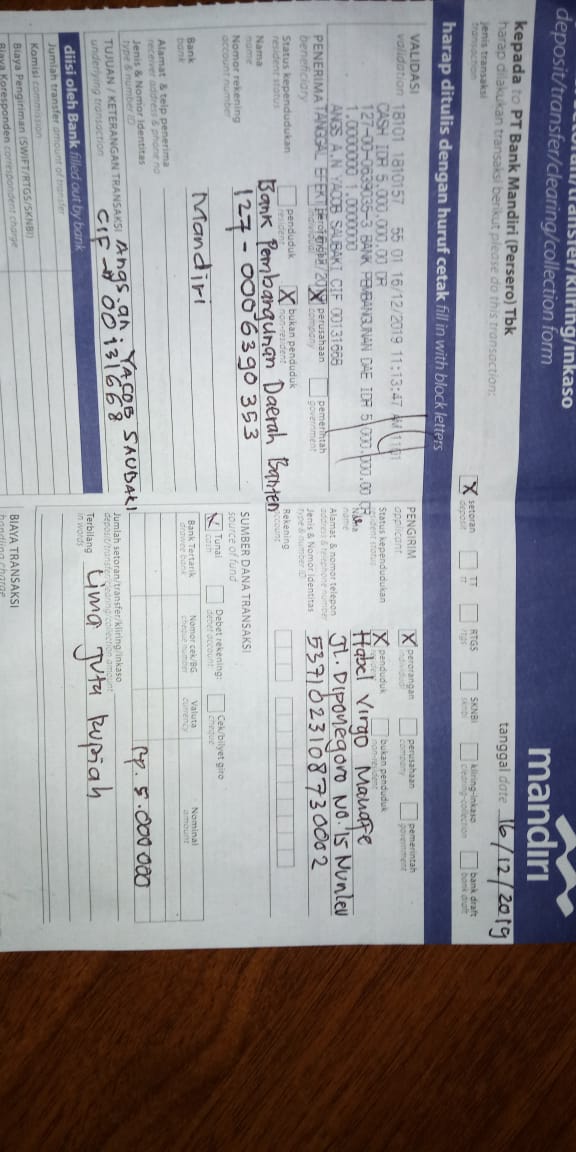 setoran/transfer/kliring/inkaso
deposit/transfer/clearing/collection form
mandiri
kepada to PT Bank Mandiri (Persero) Tbk
harap dilakukan transaksi berikut please do this transaction:
tanggal date 16/12/2019
jenis transaksi
transaction
X setoran
deposit
TT
tt
RTGS
rtgs
SKNBI
sknbi
kliring-inkaso
clearing-collection
bank draft
bank draft
harap ditulis dengan huruf cetak fill in with block letters
VALIDASI
validation
18101 1810157 55 01 16/12/2019 11:13:47 AM
CASH IDR 5,000,000.00 DR
BANK PEMBANGUNAN DAE IDR 5,000,000.00
1.0000000 1.0000000
ANGS A.N YACOB SAUBAKI CIF 00131668
PENERIMA
beneficiary
Status kependudukan
resident status
penduduk
resident
X bukan penduduk
non-resident
X perusahaan
company
pemerintah
government
Nama
name
Bank Pembangunan Daerah Banten
Nomor rekening
account number
127-0006390353
Bank
bank
Mandiri
Alamat & telp penerima
receiver address & phone no
Jenis & Nomor Identitas
type & number ID
TUJUAN / KETERANGAN TRANSAKSI
underlying transaction
Angs. an YACOB SAUBAKI
CIF 00131668
diisi oleh Bank filled out by bank
Jumlah transfer amount of transfer
Komisi commission
Biaya Pengiriman (SWIFT/RTGS/SKNBI)
Biaya Koresponden correspondent charge
PENGIRIM
applicant
X perorangan
individual
perusahaan
company
pemerintah
government
Status kependudukan
resident status
X penduduk
bukan penduduk
non-resident
Nama
name
Habel Virgo Manafe
Alamat & nomor telepon
address & telephone number
JL. Diponegoro No. 15 Nunleu
Jenis & Nomor Identitas
type & number ID
5371023108730002
Rekening
account
SUMBER DANA TRANSAKSI
source of fund
Tunai
cash
Debet rekening:
debet account
Cek/bilyet giro
cheque
Bank Tertarik
drawee bank
Nomor cek/BG
cheque number
Valuta
currency
Nominal
amount
Jumlah setoran/transfer/kliring/inkaso
deposit/transfer/clearing/collection amount
Rp. 5.000000
Terbilang
in words
Lima Juta Rupiah
BIAYA TRANSAKSI
handling charge